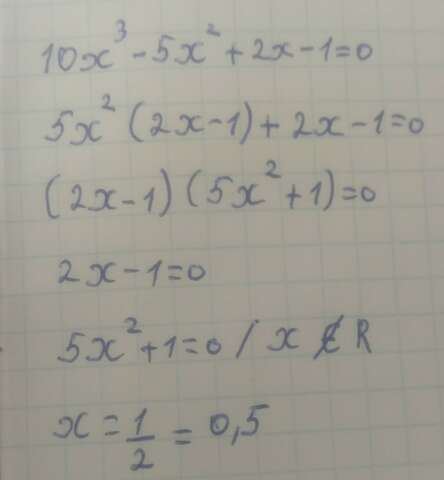 10x³ - 5x² + 2x - 1 = 0
5x² (2x - 1) + 2x - 1 = 0
(2x - 1) (5x² + 1) = 0
2x - 1 = 0
5x² + 1 = 0 / x ∉ R
x = 1/2 = 0,5